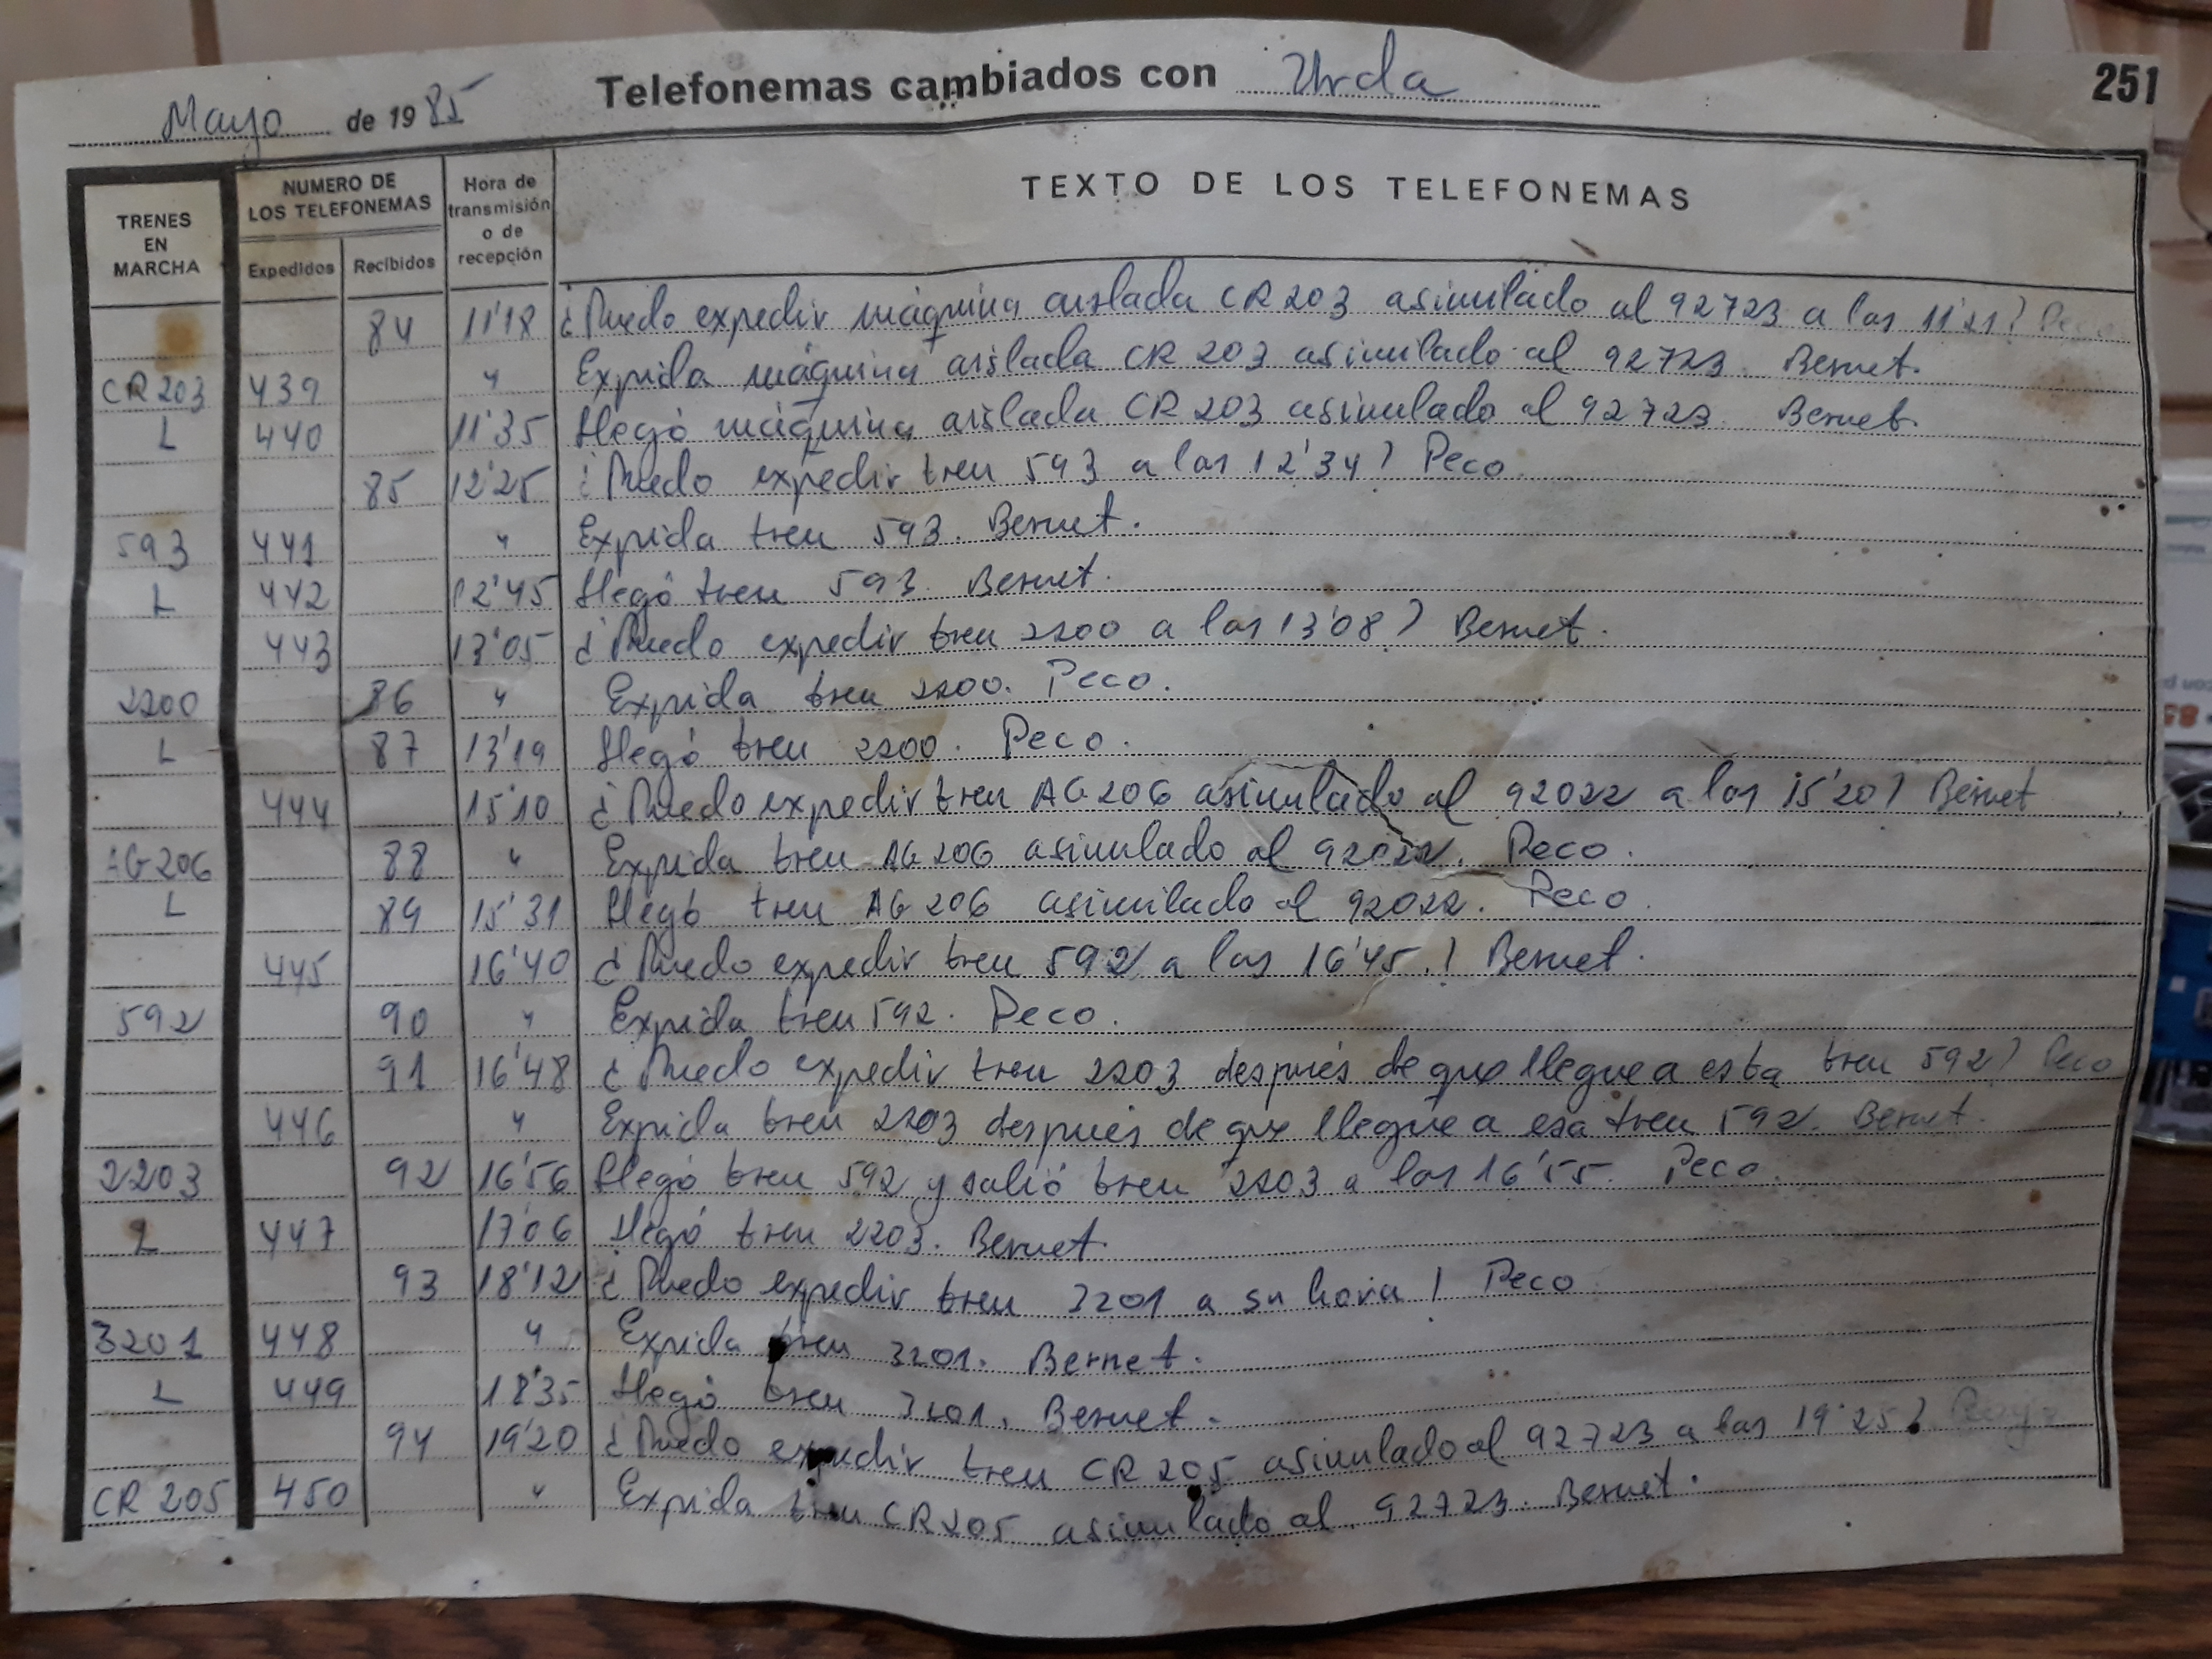 Mayo de 1985 Telefonemas cambiados con Urda 251
TRENES EN MARCHA
NUMERO DE LOS TELEFONEMAS
Expedidos Recibidos
Hora de transmisión o de recepción
TEXTO DE LOS TELEFONEMAS
84 11'18 ¿Puedo expedir máquina aislada CR 203 asimilado al 92723 a las 11'21? Peco
CR 203 439 " Expida máquina aislada CR 203 asimilado al 92723. Bernet.
L 440 11'35 Llegó máquina aislada CR 203 asimilado al 92723. Bernet.
85 12'25 ¿Puedo expedir tren 593 a las 12'34? Peco
593 441 " Expida tren 593. Bernet.
L 442 12'45 Llegó tren 593. Bernet.
443 13'05 ¿Puedo expedir tren 2200 a las 13'08? Bernet.
2200 86 " Expida tren 2200. Peco.
L 87 13'19 Llegó tren 2200. Peco.
444 15'10 ¿Puedo expedir tren AG 206 asimilado al 92022 a las 15'20? Bernet
AG 206 88 " Expida tren AG 206 asimilado al 92022. Peco.
L 89 15'31 Llegó tren AG 206 asimilado al 92022. Peco.
445 16'40 ¿Puedo expedir tren 592 a las 16'45.? Bernet.
592 90 " Expida tren 592. Peco.
91 16'48 ¿Puedo expedir tren 2203 después de que llegue a esta tren 592? Peco
446 " Expida tren 2203 después de que llegue a esa tren 592. Bernet.
2203 92 16'56 Llegó tren 592 y salió tren 2203 a las 16'55. Peco.
L 447 17'06 Llegó tren 2203. Bernet.
93 18'12 ¿Puedo expedir tren 3201 a su hora? Peco
3201 448 " Expida tren 3201. Bernet.
L 449 18'35 Llegó tren 3201. Bernet.
94 19'20 ¿Puedo expedir tren CR 205 asimilado al 92723 a las 19'25?
CR 205 450 " Expida tren CR 205 asimilado al 92723. Bernet.